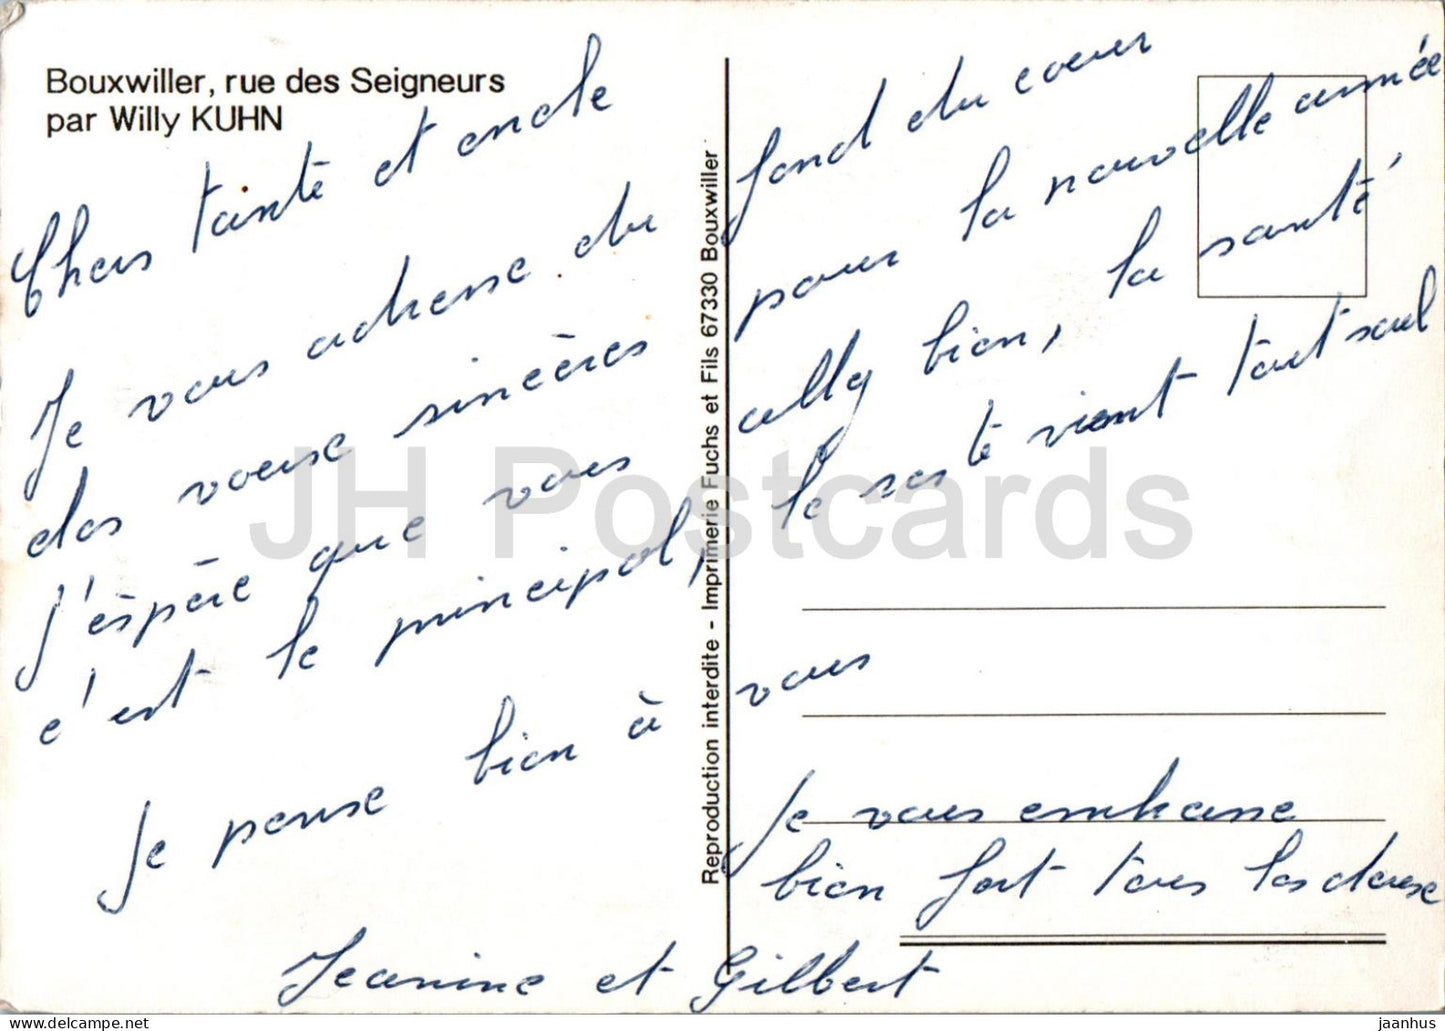 Bouxwiller, rue des Seigneurs
par Willy KUHN
Chers tante et oncle
Je vous adresse du fond du coeur
des voeux sincères pour la nouvelle année
J'espère que vous allez bien, la santé
c'est le principal, le reste vient tout seul
Je pense bien à vous
Je vous embrasse
bien fort tous les deux
Jeanine et Gilbert
Reproduction interdite - Imprimerie Fuchs et Fils 67330 Bouxwiller
JH Postcards
jaanhus
HipPostcard